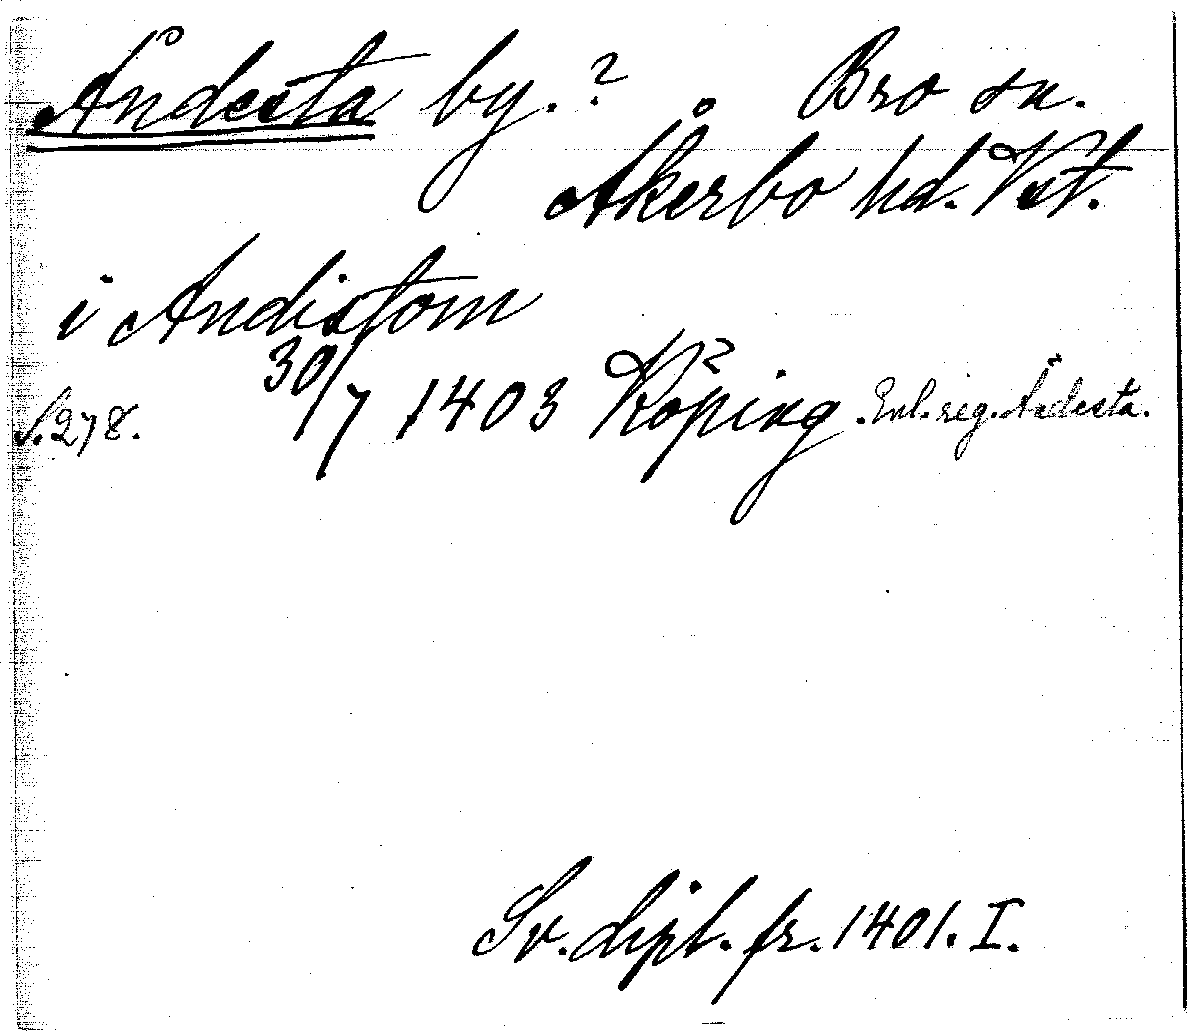 Åndesta by.? Bro sn.
Åkerbo hd. Vst.
i Andistom
S. 278. 30/7 1403 Köping. Enl. reg. Åndesta.
Sv. dipl. fr. 1401. I.